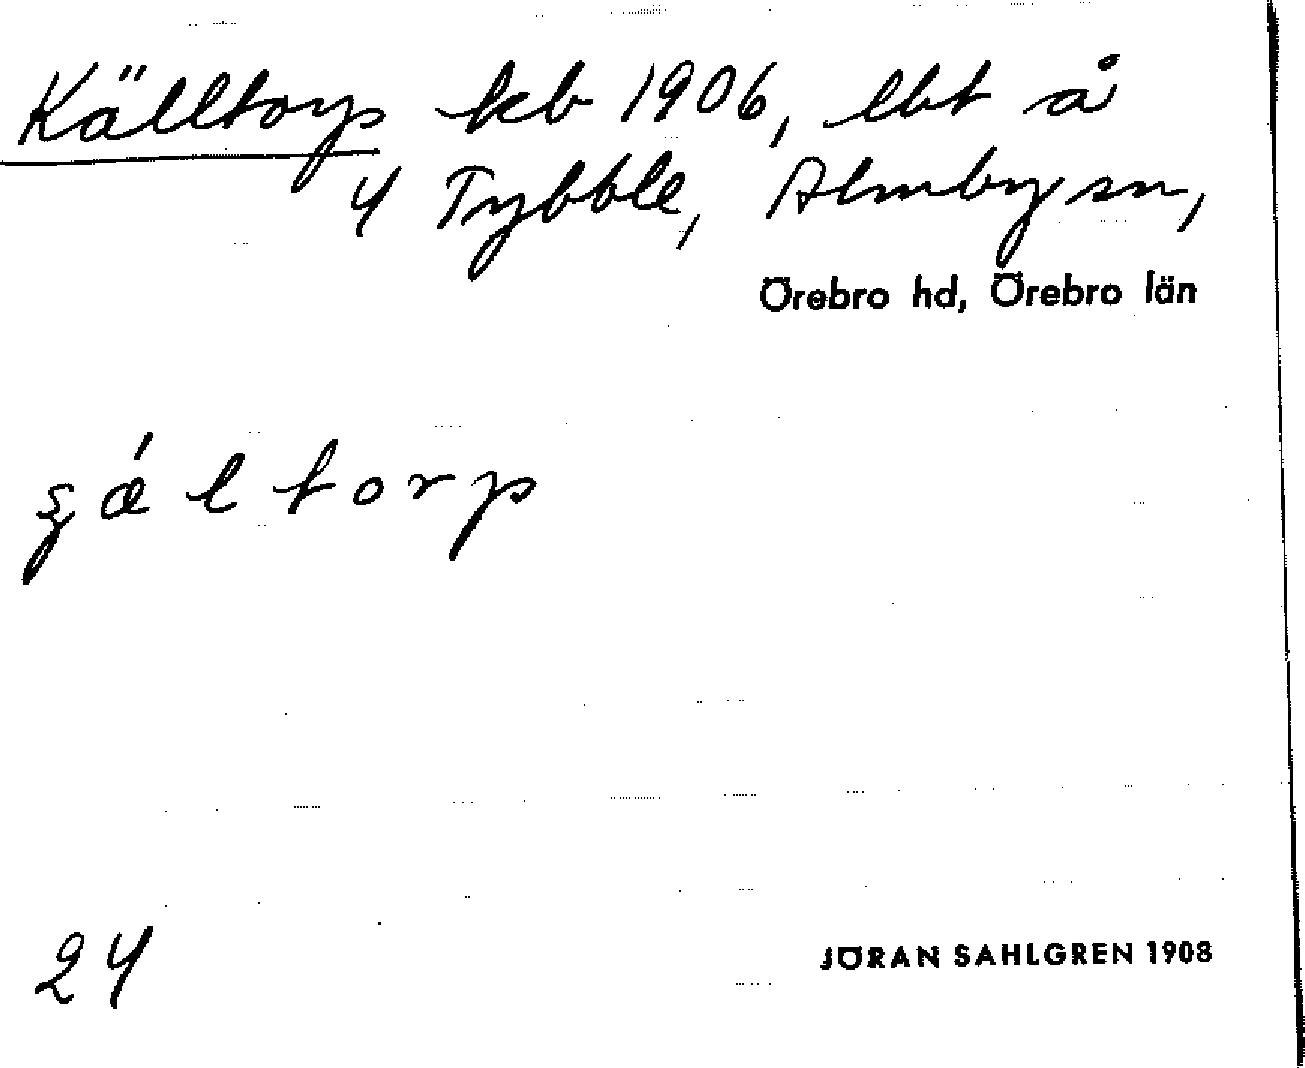 Källtorp kb 1906, lht å
4 Tybble, Almby sn,
Örebro hd, Örebro län
ʂǽltorp
24
JÖRAN SAHLGREN 1908